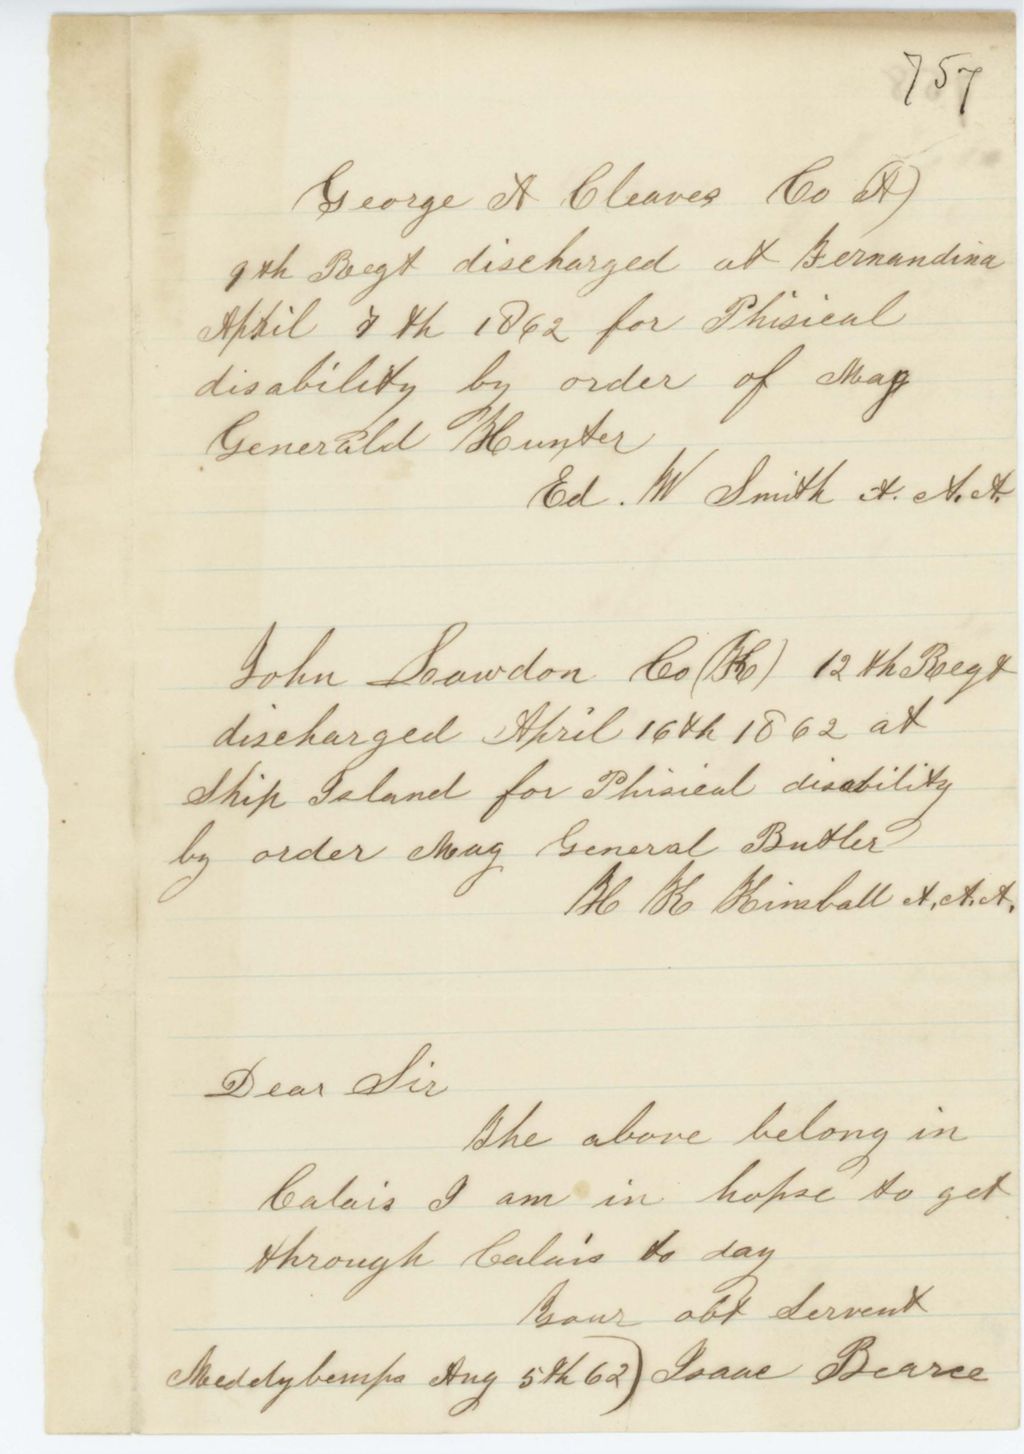 757
George A Cleaves Co (A)
9th Regt discharged at Fernandina
April 7th 1862 for Phisical
disability by order of Mag
Generald Hunter
Ed. W Smith A. A. A.
John Lowdon Co (K) 12th Regt
discharged April 16th 1862 at
Ship Island for Phisical disability
by order Mag General Butler
H K Kimball A. A. A.
Dear Sir
The above belong in
Calais I am in hopse to get
through Calais to day
Your obt Servent
Meddybemps Aug 5th 62) Isaac Bearce